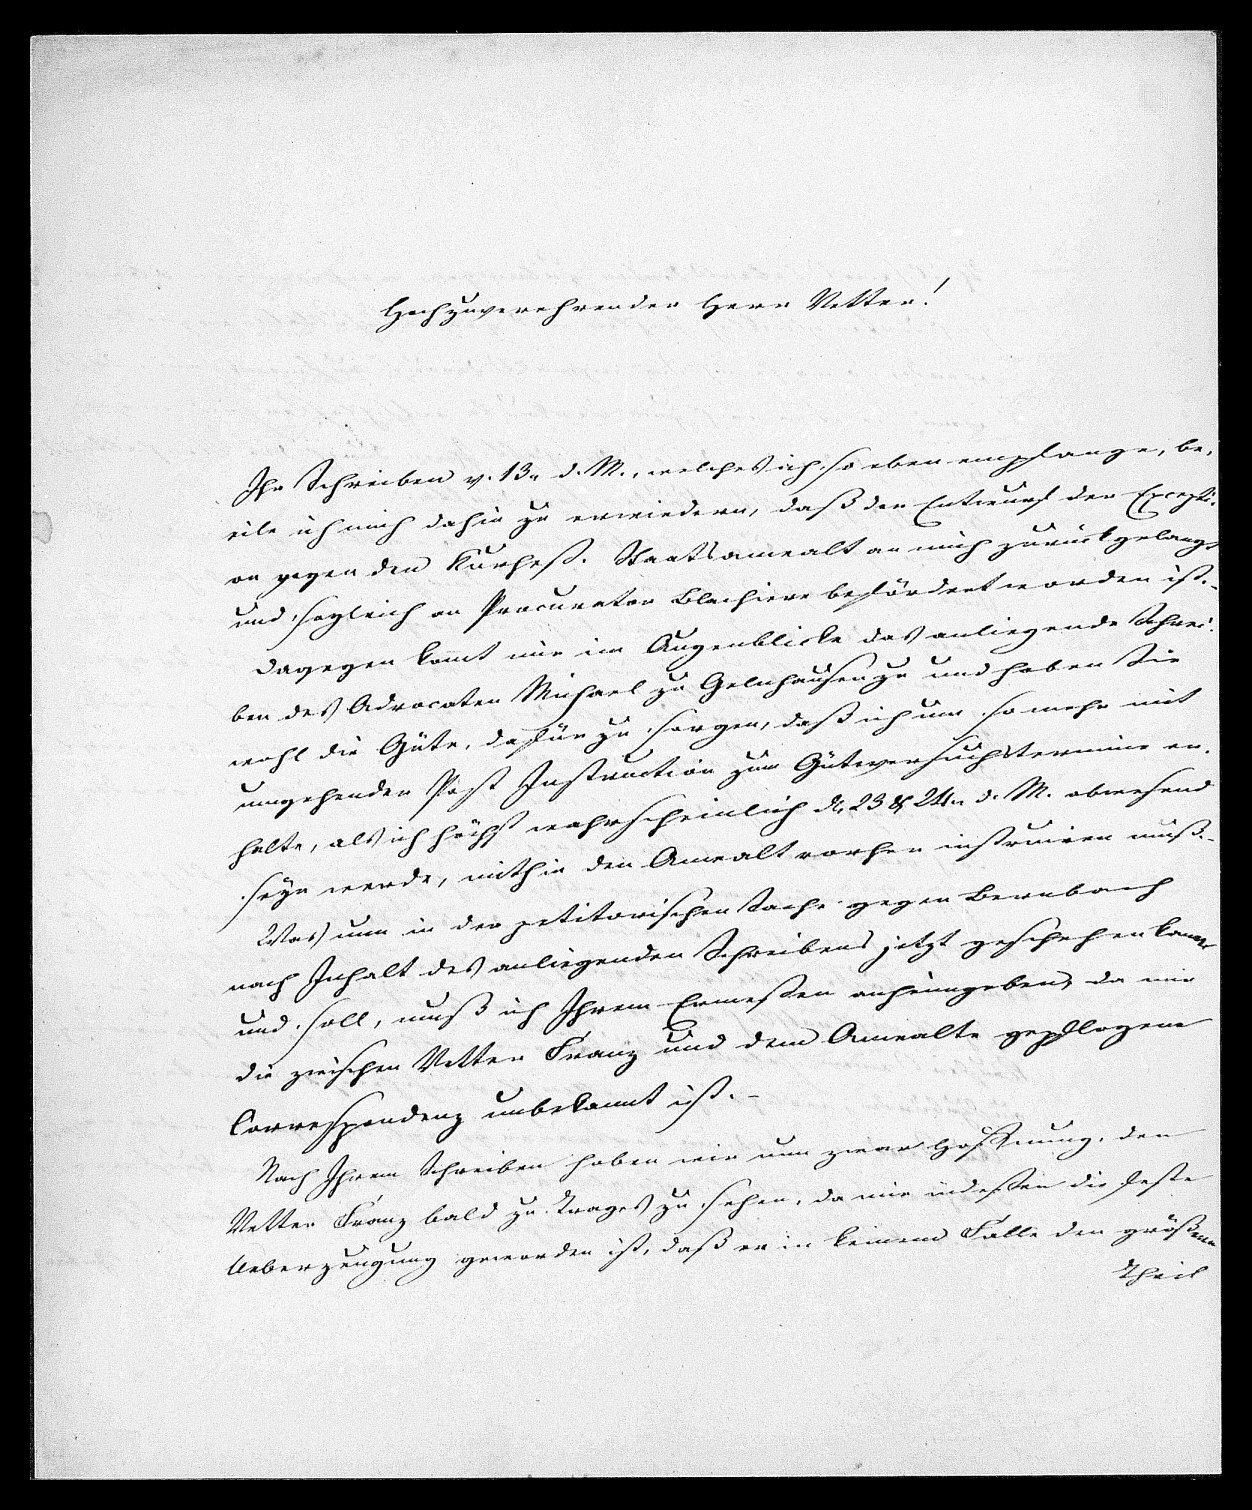 Hochzuverehrender Herr Vetter!
Ihr Schreiben v. 13n d. M., welches ich so eben empfange, be-
eile ich mich dahin zu erwiedern, daß der Entwurf der Excepti-
on gegen den Kurheß. Staatsanwalt an mich zurückgelangt
und sogleich an Procurator Blachiere befördert worden ist. –
Dagegen kommt mir im Augenblicke das anliegende Schrei-
ben des Advocaten Michael zu Gelnhausen zu und haben Sie
wohl die Güte, dafür zu sorgen, daß ich um so mehr mit
umgehender Post Instruction zum Güteversuchstermine er-
halte, als ich höchst wahrscheinlich d. 23 & 24n d. M. abwesend
seyn werde, mithin den Anwalt vorher instruiren muß. –
Was nun in der petitorischen Sache gegen Bernbach
nach Inhalt des anliegenden Schreibens jetzt geschehen kann
und soll, muß ich Ihrem Ermeßen anheimgeben, da mir
die zwischen Vetter Franz und dem Anwalte gepflogene
Correspondenz unbekannt ist. –
Nach Ihrem Schreiben haben wir nun zwar Hoffnung, den
Vetter Franz bald zu Trages zu sehen, da mir indeßen die feste
Ueberzeugung geworden ist, daß er in keinem Falle den größern
Theil